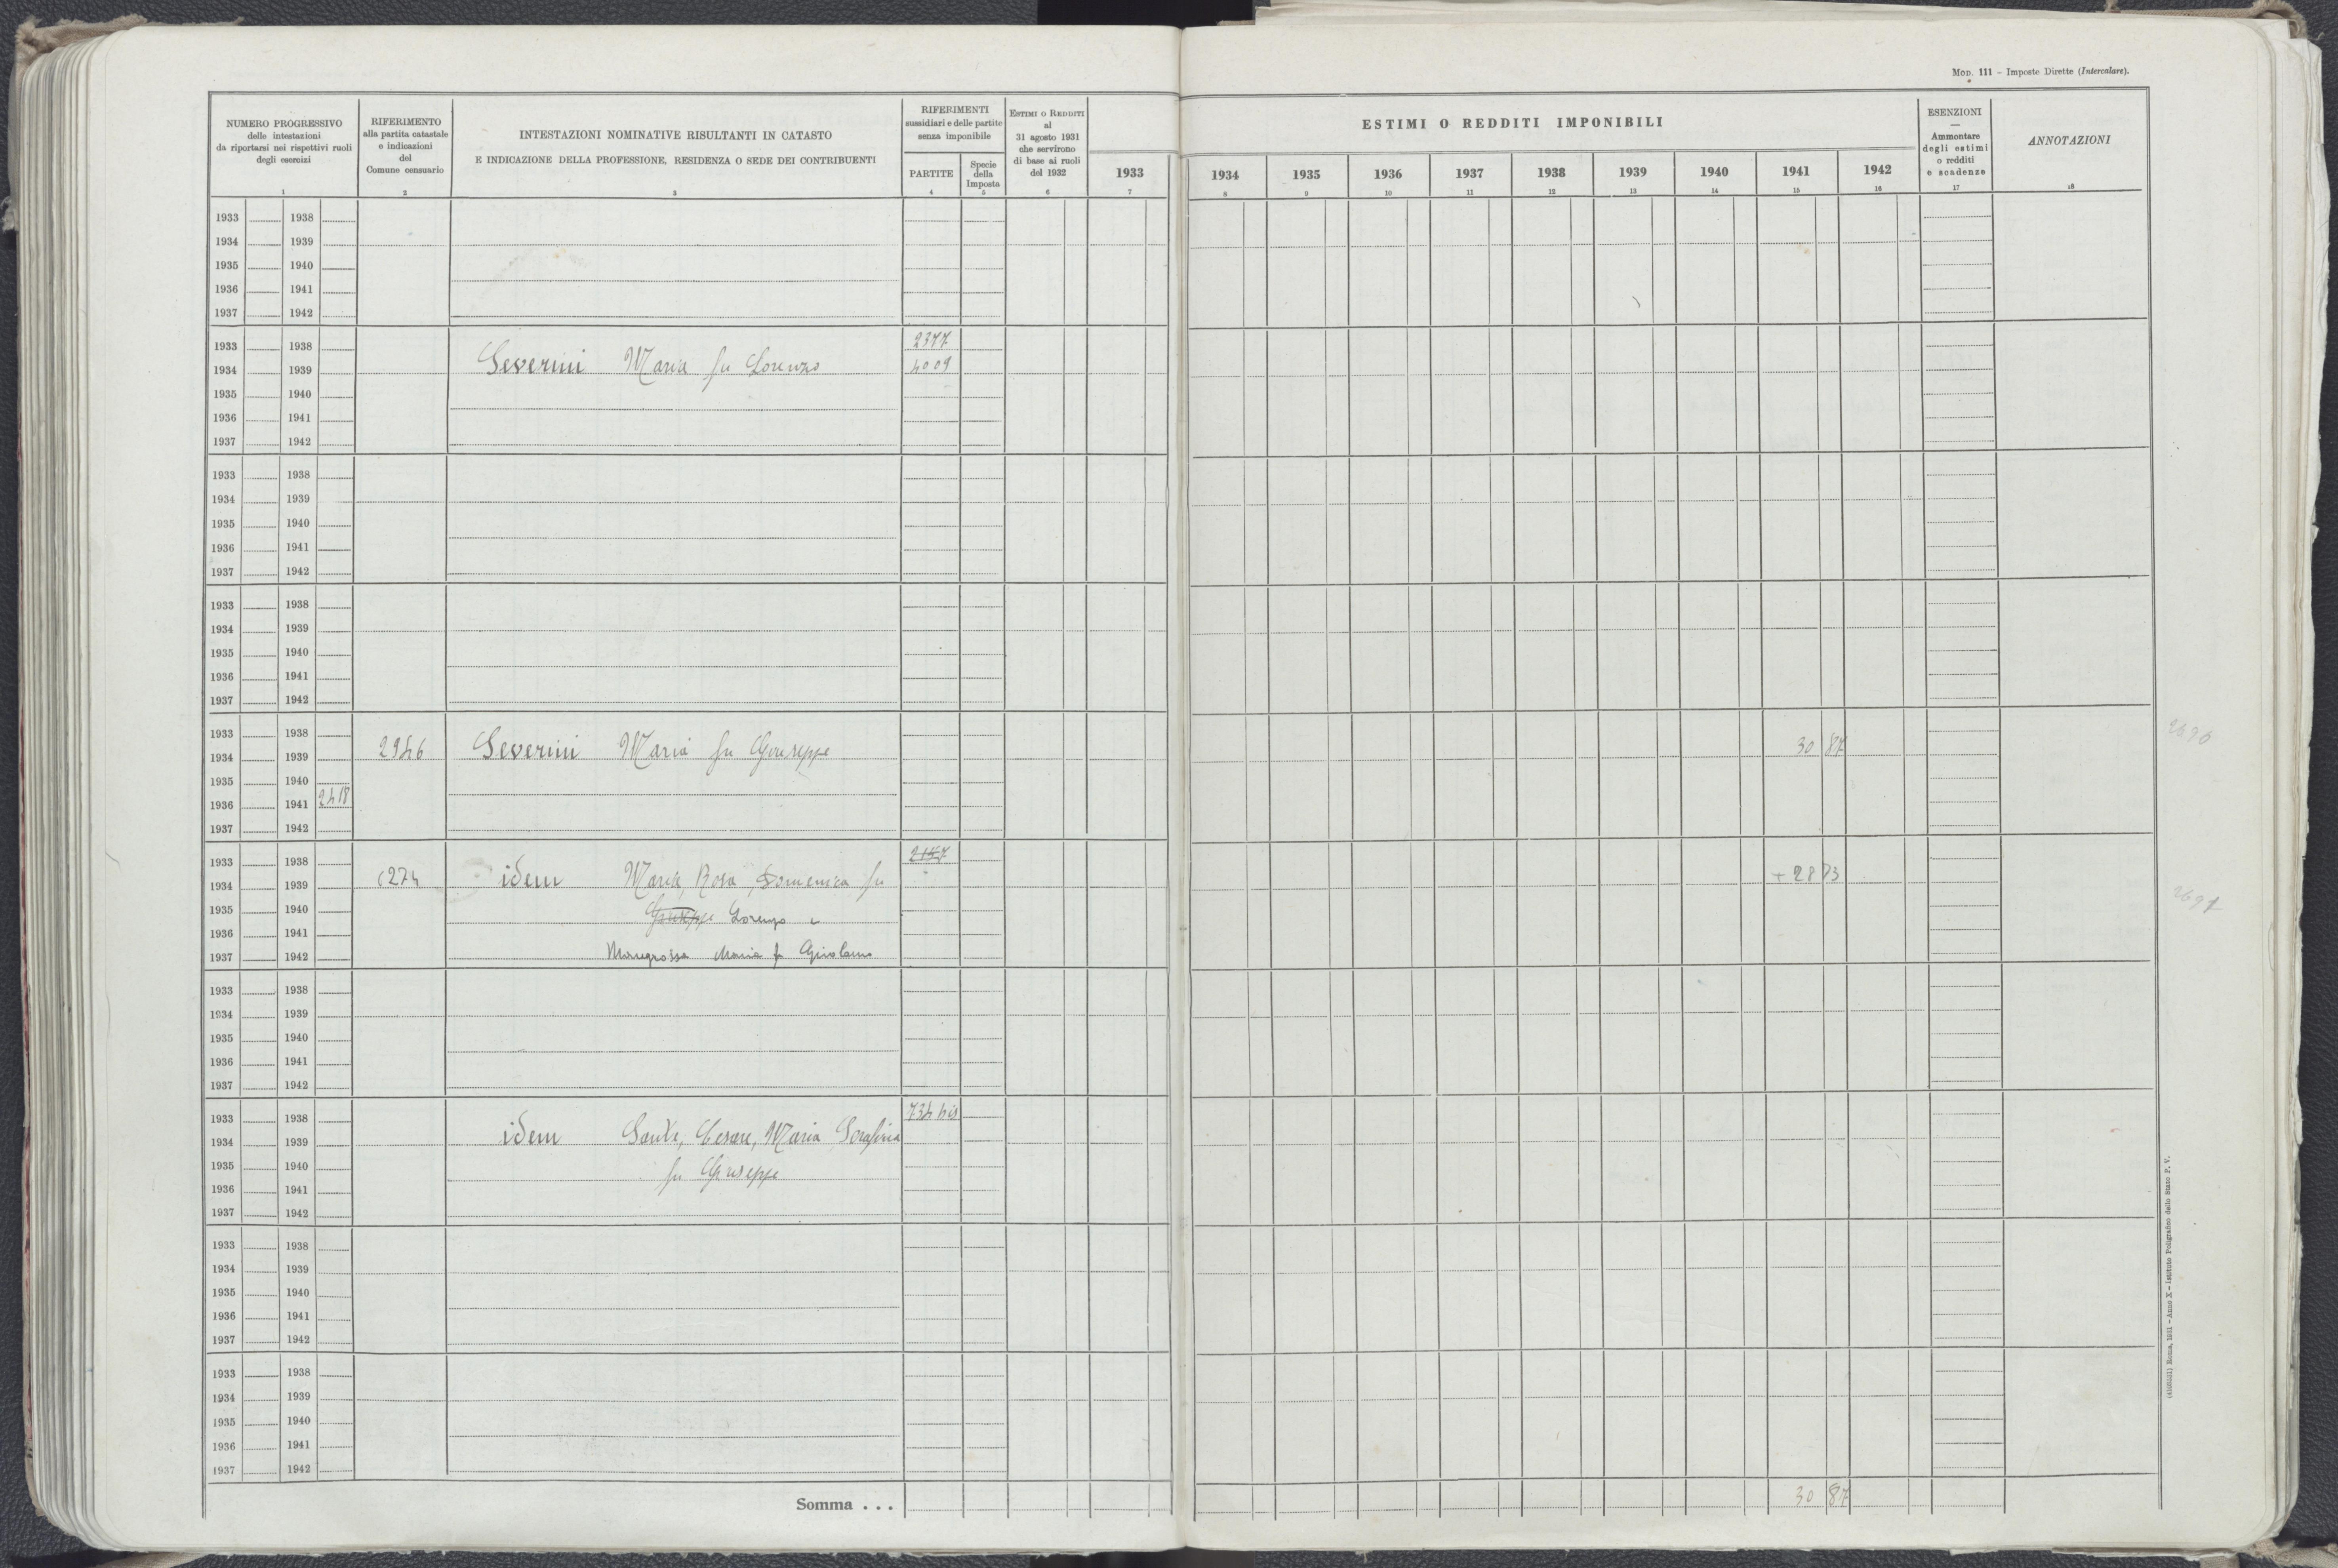 Mod. 111 - Imposte Dirette (Intercalare).
NUMERO PROGRESSIVO
delle intestazioni
da riportarsi nei rispettivi ruoli
degli esercizi
1
RIFERIMENTO
alla partita catastale
e indicazioni
del
Comune censuario
2
INTESTAZIONI NOMINATIVE RISULTANTI IN CATASTO
E INDICAZIONE DELLA PROFESSIONE, RESIDENZA O SEDE DEI CONTRIBUENTI
3
RIFERIMENTI
sussidiari e delle partite
senza imponibile
PARTITE
4
Specie
della
Imposta
5
ESTIMI O REDDITI
al
31 agosto 1931
che servirono
di base ai ruoli
del 1932
6
ESTIMI O REDDITI IMPONIBILI
1933 1934 1935 1936 1937 1938 1939 1940 1941 1942
7 8 9 10 11 12 13 14 15 16
ESENZIONI
—
Ammontare
degli estimi
o redditi
e scadenze
17
ANNOTAZIONI
18
1933 1938
1934 1939
1935 1940
1936 1941
1937 1942
1933 1938 2377
1934 1939 Severini Maria fu Lorenzo 4009
1935 1940
1936 1941
1937 1942
1933 1938
1934 1939
1935 1940
1936 1941
1937 1942
1933 1938
1934 1939
1935 1940
1936 1941
1937 1942
1933 1938 2696
1934 1939 2946 Severini Maria fu Giuseppe 30 87
1935 1940
1936 1941 2418
1937 1942
1933 1938 2157
1934 1939 idem Maria, Rosa, Domenica fu + 28 73
1935 1940 Giuseppe Lorenzo e 2697
1936 1941
1937 1942 Maria fu Girolamo
1933 1938
1934 1939
1935 1940
1936 1941
1937 1942
1933 1938 734 bis
1934 1939 idem Sante, Cesare, Maria Serafina
1935 1940 fu Giuseppe
1936 1941
1937 1942
1933 1938
1934 1939
1935 1940
1936 1941
1937 1942
1933 1938
1934 1939
1935 1940
1936 1941
1937 1942
Somma . . . 30 87
Roma, 1931 - Anno X - Istituto Poligrafico dello Stato P. V.